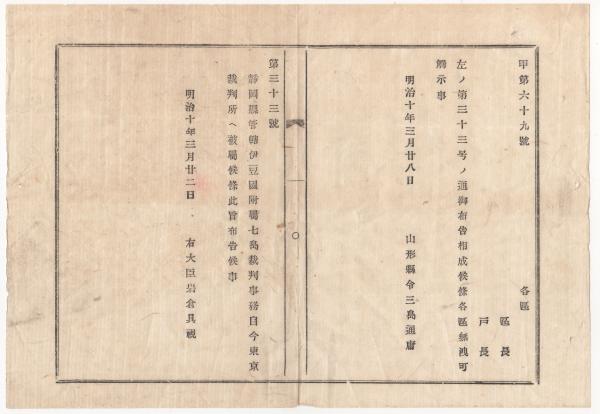 甲第六十九號
各區
區長
戸長
左ノ第三十三号ノ通御布告相成候條各區無洩可
觸示事
明治十年三月廿八日
山形縣令三島通庸
第三十三號
靜岡縣管轄伊豆國附屬七島裁判事務自今東京
裁判所ヘ被屬候條此旨布告候事
明治十年三月廿二日
右大臣岩倉具視